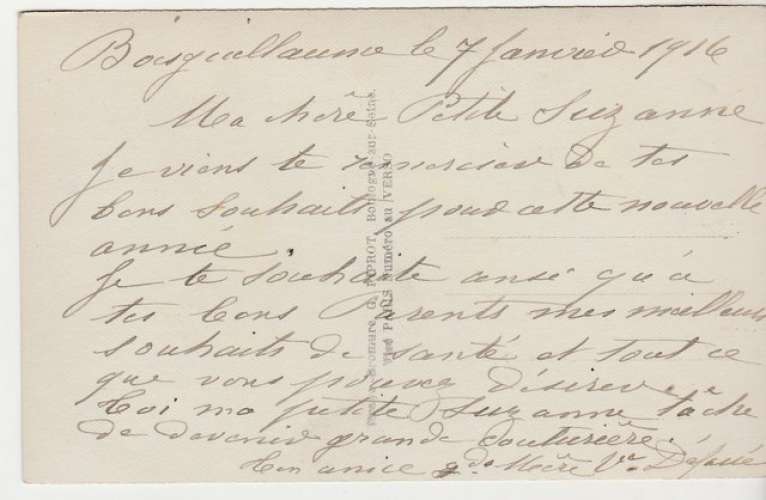 Boisguillaume le 7 Janvier 1916
Ma chère Petite Suzanne
Je viens te remercier de tes
bons souhaits pour cette nouvelle
année.
Je te souhaite ansi qu'à
tes bons Parents mes meilleurs
souhaits de santé et tout ce
que vous pouvez désirer.
Toi ma petite Suzanne tâche
de devenir grande couturière.
Ton amie gde Mère Vve
PROT, Boulogne-sur-Seine.
VISÉ PARIS numéro au VERSO